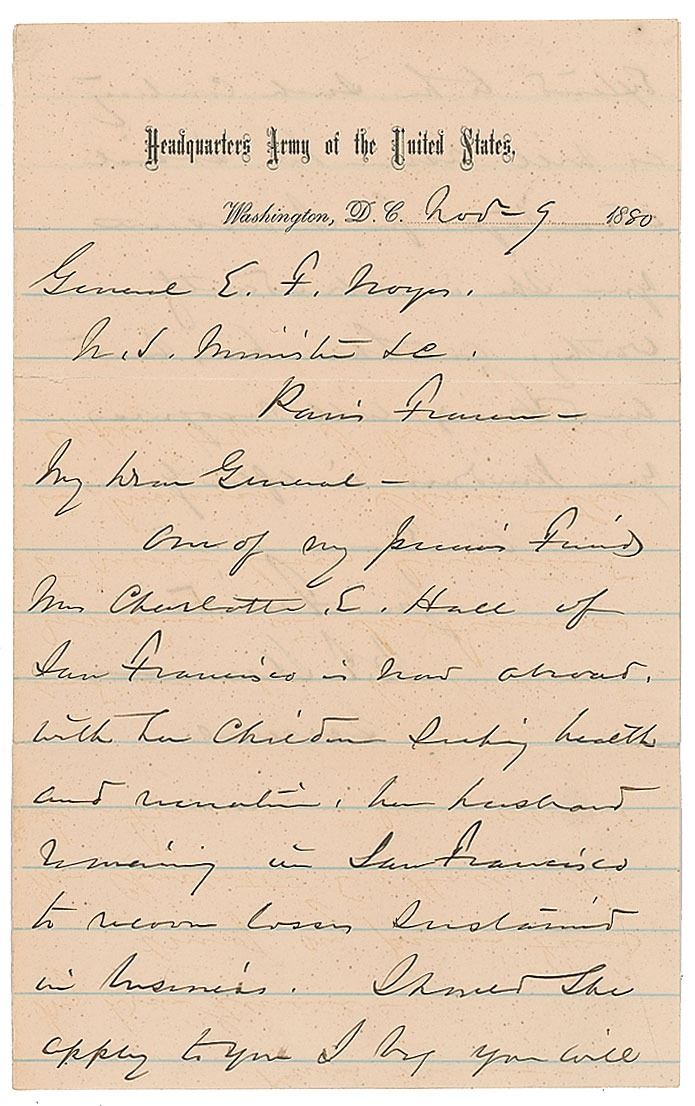 Headquarters Army of the United States,
Washington, D.C. Nov - 9 1880
General E. F. Noyes.
U.S. Minister &c.
Paris France -
My Dear General -
One of my precious Friends
Mrs Charlotte E. Hall of
San Francisco is now abroad.
with her Children Seeking health
and recreation, her husband
remaining in San Francisco
to recover losses Sustained
in business. Should She
apply to you I beg you will